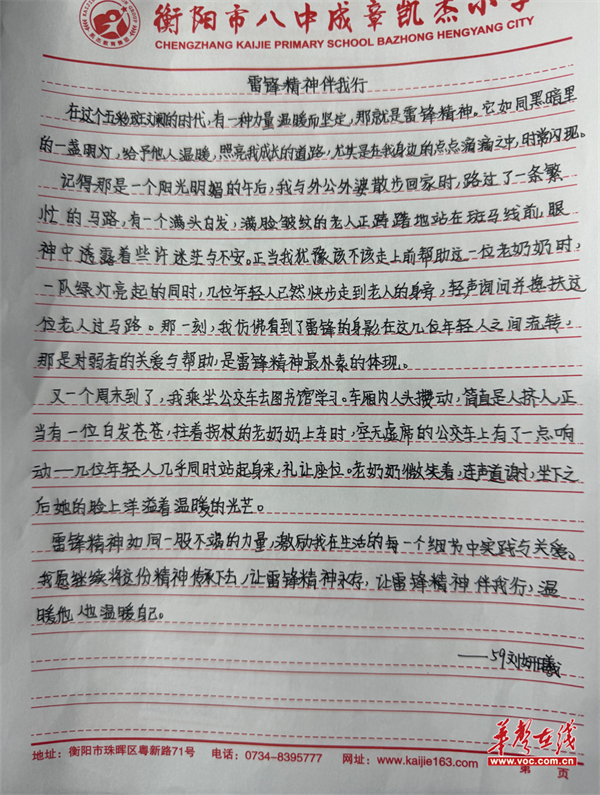 衡阳市八中成章凯杰小学
CHENGZHANG KAIJIE PRIMARY SCHOOL BAZHONG HENGYANG CITY
雷锋精神伴我行
在这个五彩斑斓的时代,有一种力量温暖而坚定,那就是雷锋精神。它如同黑暗里
的一盏明灯,给予他人温暖,照亮我成长的道路,尤其是在我身边的点点滴滴之中,时常闪现。
记得那是一个阳光明媚的午后,我与外公外婆散步回家时,路过了一条繁
忙的马路,有一个满头白发,满脸皱纹的老人正踌躇地站在斑马线前,眼
神中透露着些许迷茫与不安。正当我犹豫该不该走上前帮助这一位老奶奶时,
一队绿灯亮起的同时,几位年轻人已然快步走到老人的身旁,轻声询问并搀扶这
位老人过马路。那一刻,我仿佛看到了雷锋的身影在这几位年轻人之间流转,
那是对弱者的关爱与帮助,是雷锋精神最朴素的体现。
又一个周末到了,我乘坐公交车去图书馆学习。车厢内人头攒动,简直是人挤人,正
当有一位白发苍苍,拄着拐杖的老奶奶上车时,空无虚席的公交车上有了一点响
动——几位年轻人几乎同时站起身来,礼让座位。老奶奶微笑着,连声道谢,坐下之
后她的脸上洋溢着温暖的光芒。
雷锋精神如同一股不竭的力量,激励我在生活的每一个细节中实践与关爱。
我愿继续将这份精神传承下去,让雷锋精神永存,让雷锋精神伴我行,温
暖他人也温暖自己。
——59刘妍曦
地址:衡阳市珠晖区粤新路71号 电话:0734-8395777 网址:www.kaijie163.com 第 页
华声在线
www.voc.com.cn